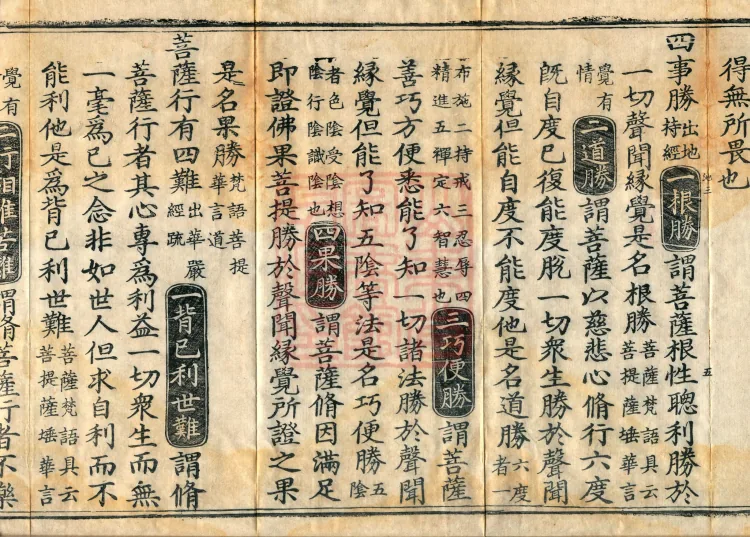 得無所畏也
四事勝出地持經一根勝謂菩薩根性聰利勝於
一切聲聞緣覺是名根勝菩薩梵語具云菩提薩埵華言
覺有情二道勝謂菩薩以慈悲心脩行六度
旣自度已復能度脫一切衆生勝於聲聞
緣覺但能自度不能度他是名道勝六度者一
布施二持戒三忍辱四精進五禪定六智慧也三巧便勝謂菩薩
善巧方便悉能了知一切諸法勝於聲聞
緣覺但能了知五陰等法是名巧便勝五陰
者色陰受陰想陰行陰識陰也四果勝謂菩薩脩因滿足
即證佛果菩提勝於聲聞緣覺所證之果
是名果勝梵語菩提華言道
菩薩行有四難出華嚴經疏一背已利世難謂脩
菩薩行者其心專爲利益一切衆生而無
一毫爲已之念非如世人但求自利而不
能利他是爲背已利世難菩薩梵語具云菩提薩埵華言
覺有
謂脩菩薩行者不樂